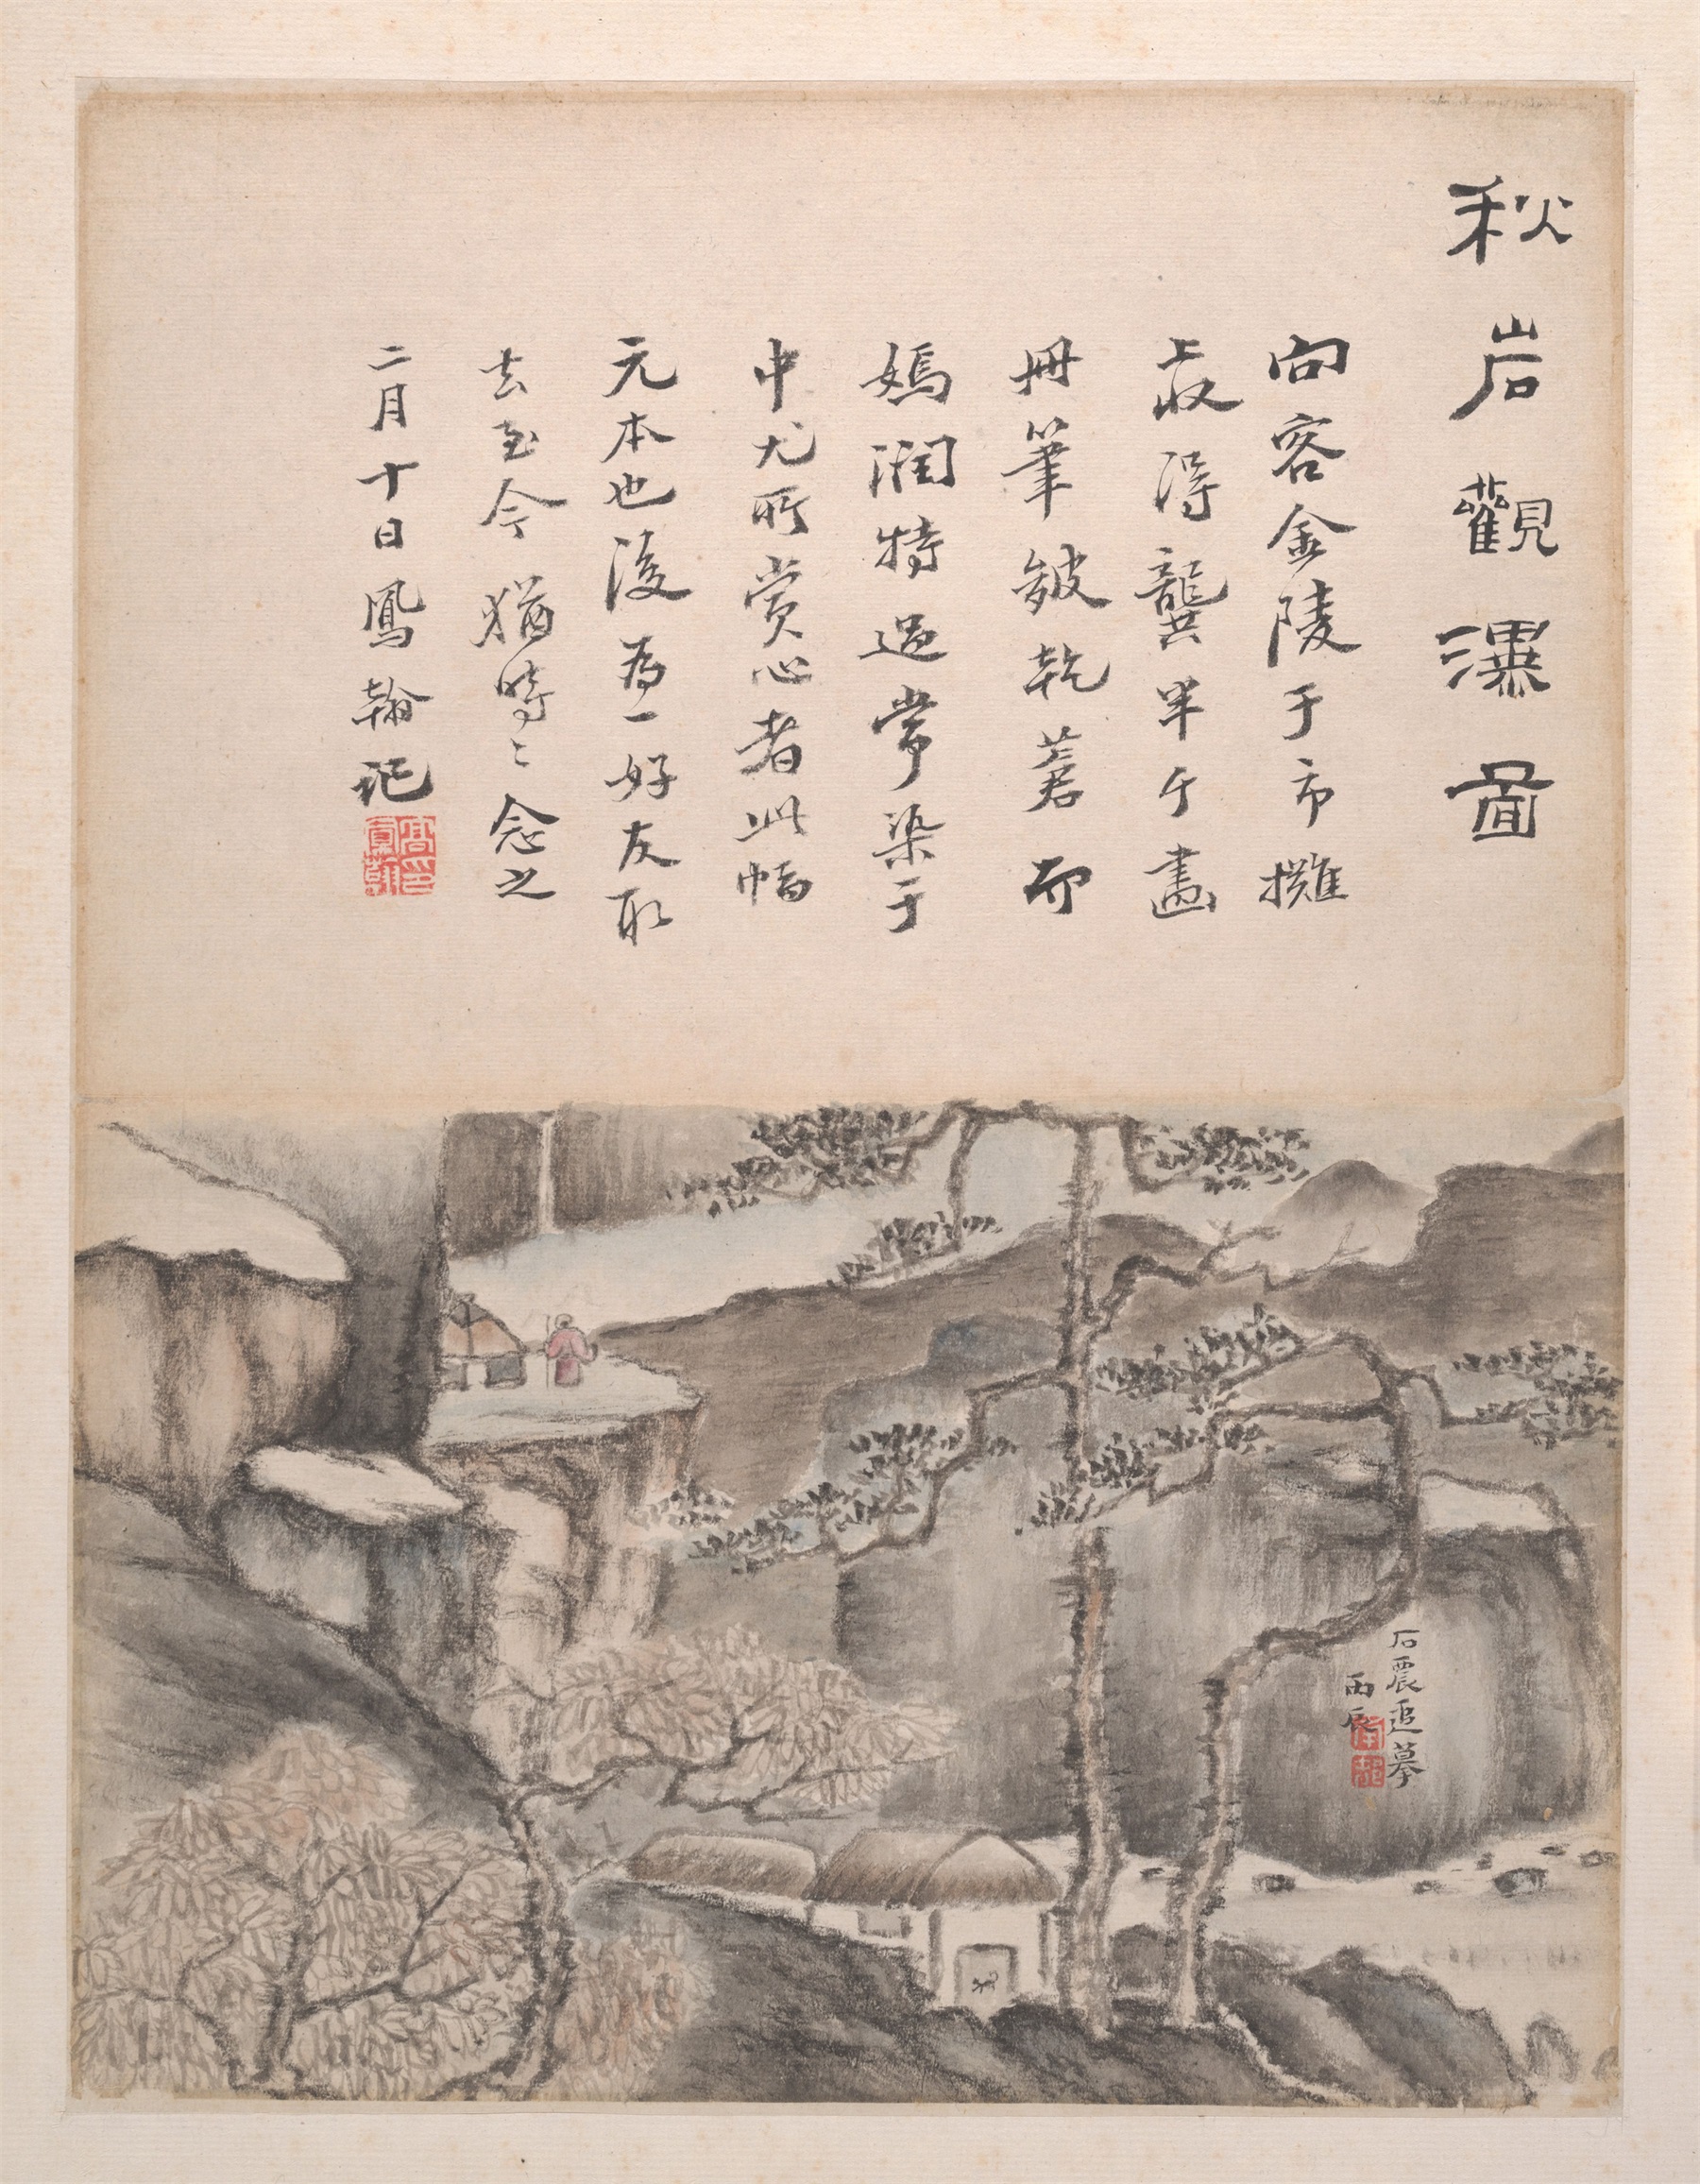 秋岩觀瀑啚
向容金陵于市攤
上収淂龔半千畫
冊筆皴乾蒼而
嫣潤特過常染于
中尤所賞心者此幅
元本也後為一好友取
去至今猶時〻念之
二月十日鳳翰記
高鳳翰印
石農追摹
丙辰